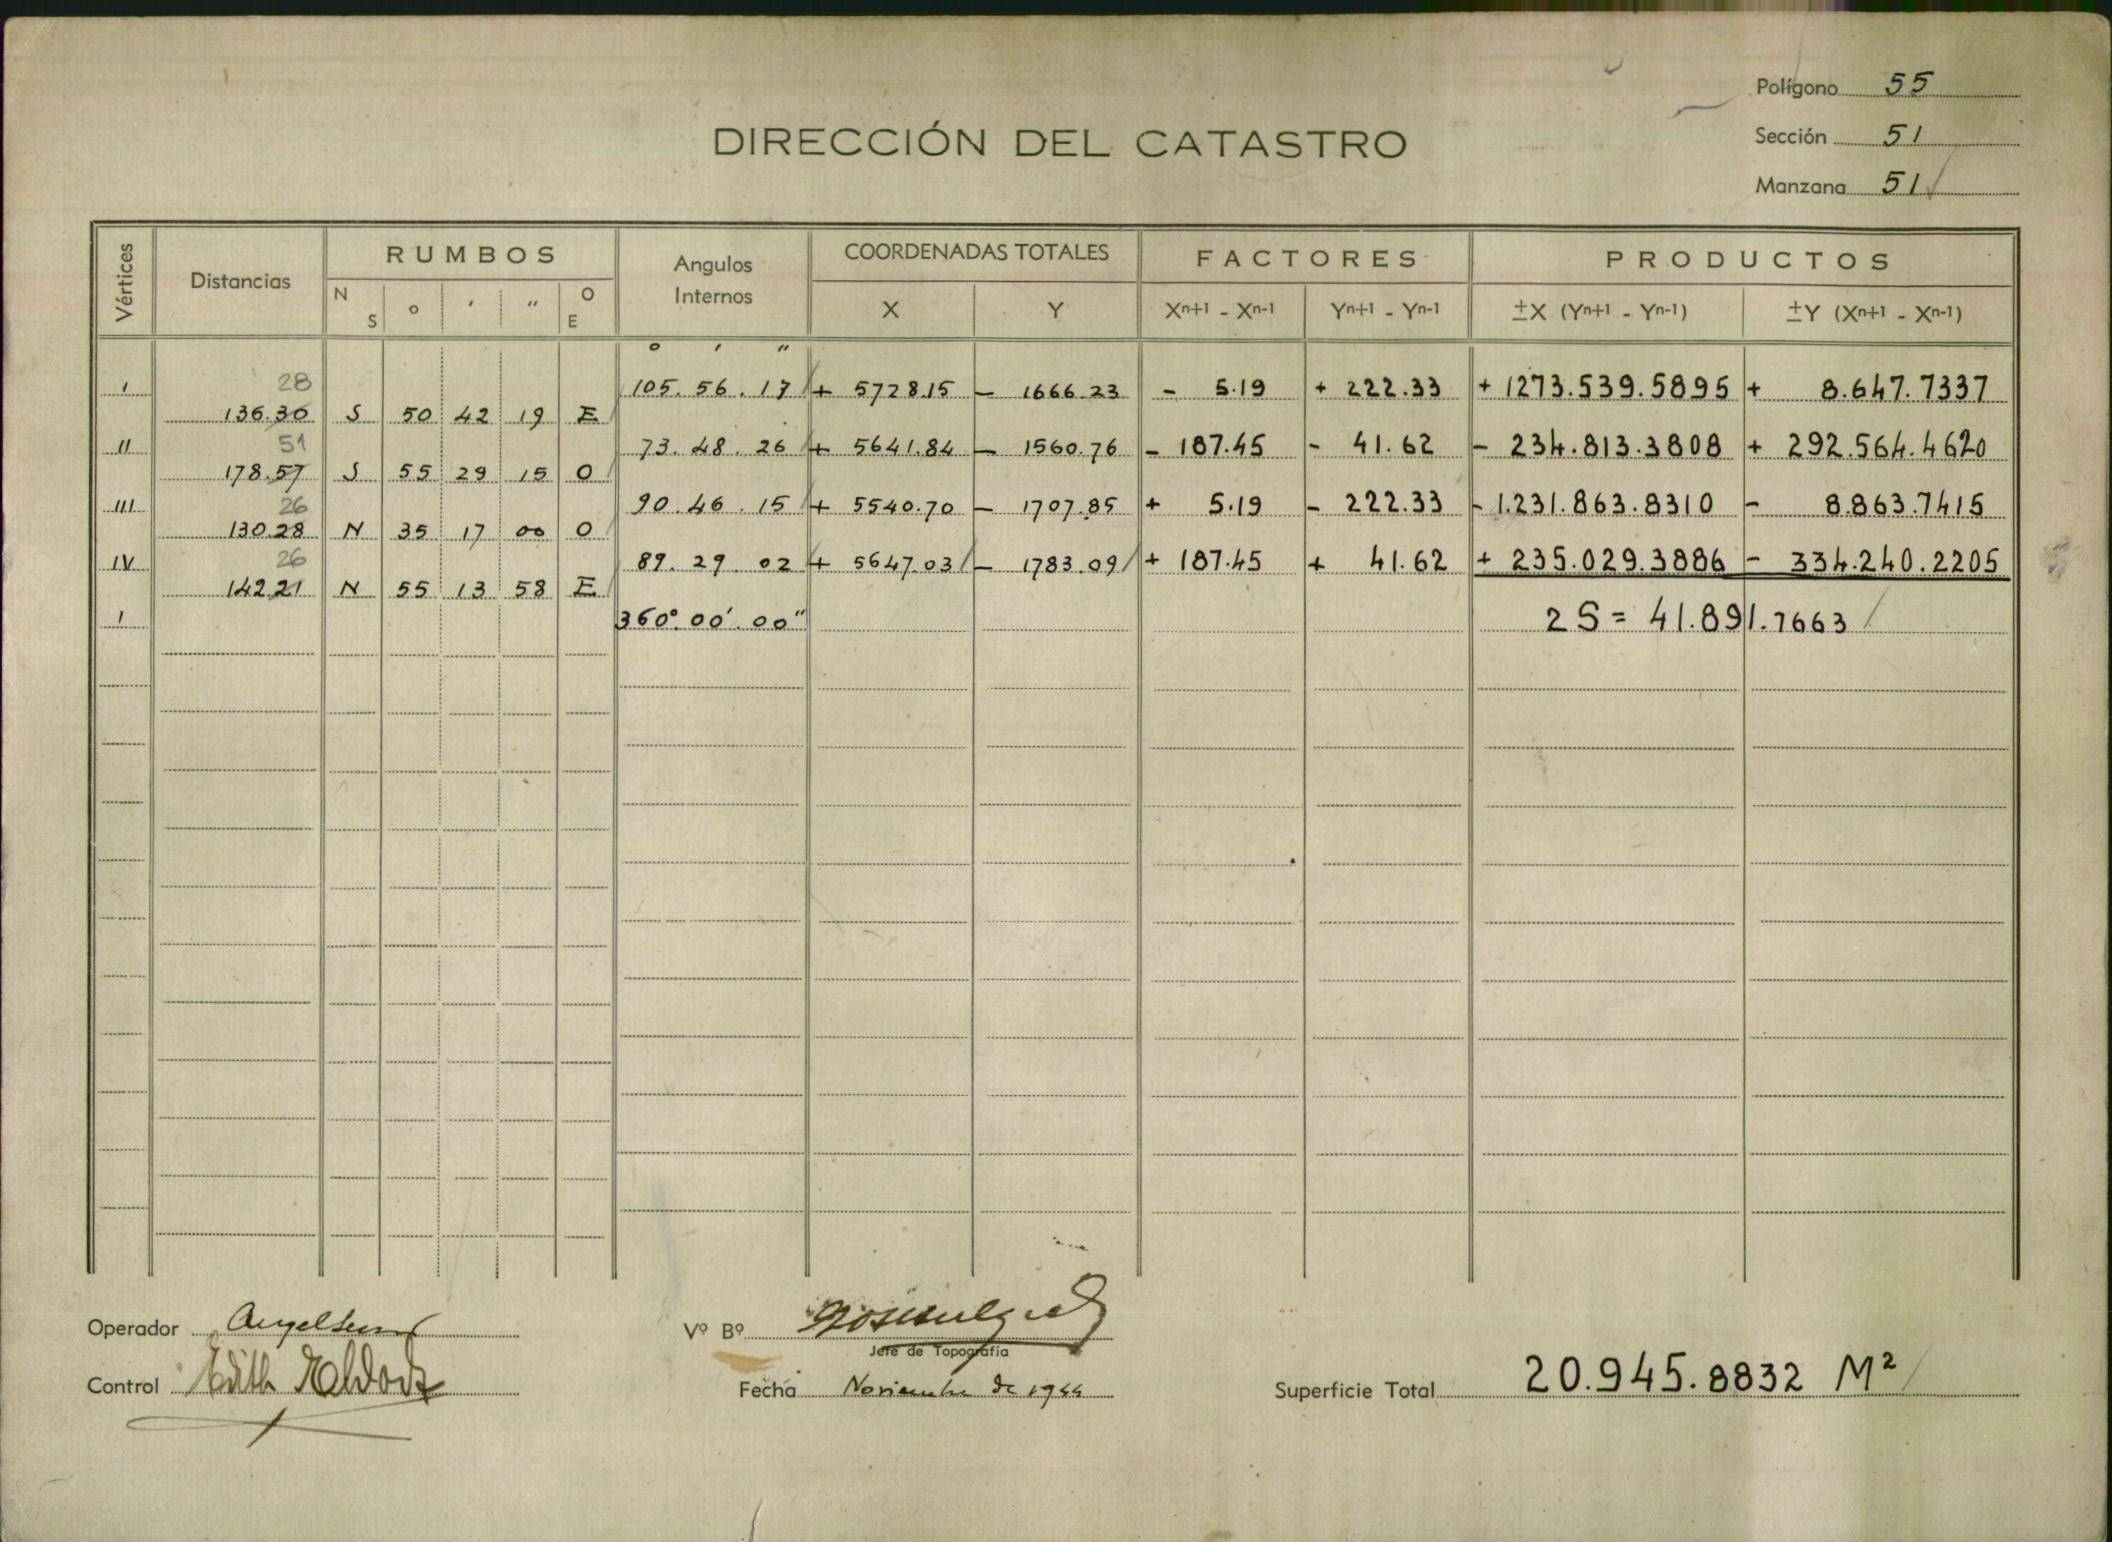 Polígono 55
DIRECCIÓN DEL CATASTRO
Sección 51
Manzana 51
Vértices Distancias RUMBOS Angulos Internos COORDENADAS TOTALES FACTORES PRODUCTOS
N S ° ' " O E X Y Xn+1 - Xn-1 Yn+1 - Yn-1 ±X (Yn+1 - Yn-1) ±Y (Xn+1 - Xn-1)
° ' "
I 28 105. 56. 17 + 5728.15 — 1666.23 - 5.19 + 222.33 + 1273.539.5895 + 8.647.7337
136.30 S 50 42 19 E
II 51 73. 48. 26 + 5641.84 — 1560.76 - 187.45 - 41.62 - 234.813.3808 + 292.564.4620
178.57 S 55 29 15 O
III 26 90. 46. 15 + 5540.70 — 1707.85 + 5.19 - 222.33 - 1.231.863.8310 - 8.863.7415
130.28 N 35 17 00 O
IV 26 89. 29. 02 + 5647.03 — 1783.09 + 187.45 + 41.62 + 235.029.3886 - 334.240.2205
142.21 N 55 13 58 E
I 360°. 00'. 00" 2 S = 41.891.7663
Operador
Vº Bº
Jefe de Topografía
Control Edith
Fecha Noviembre de 1944
Superficie Total 20.945.8832 M²